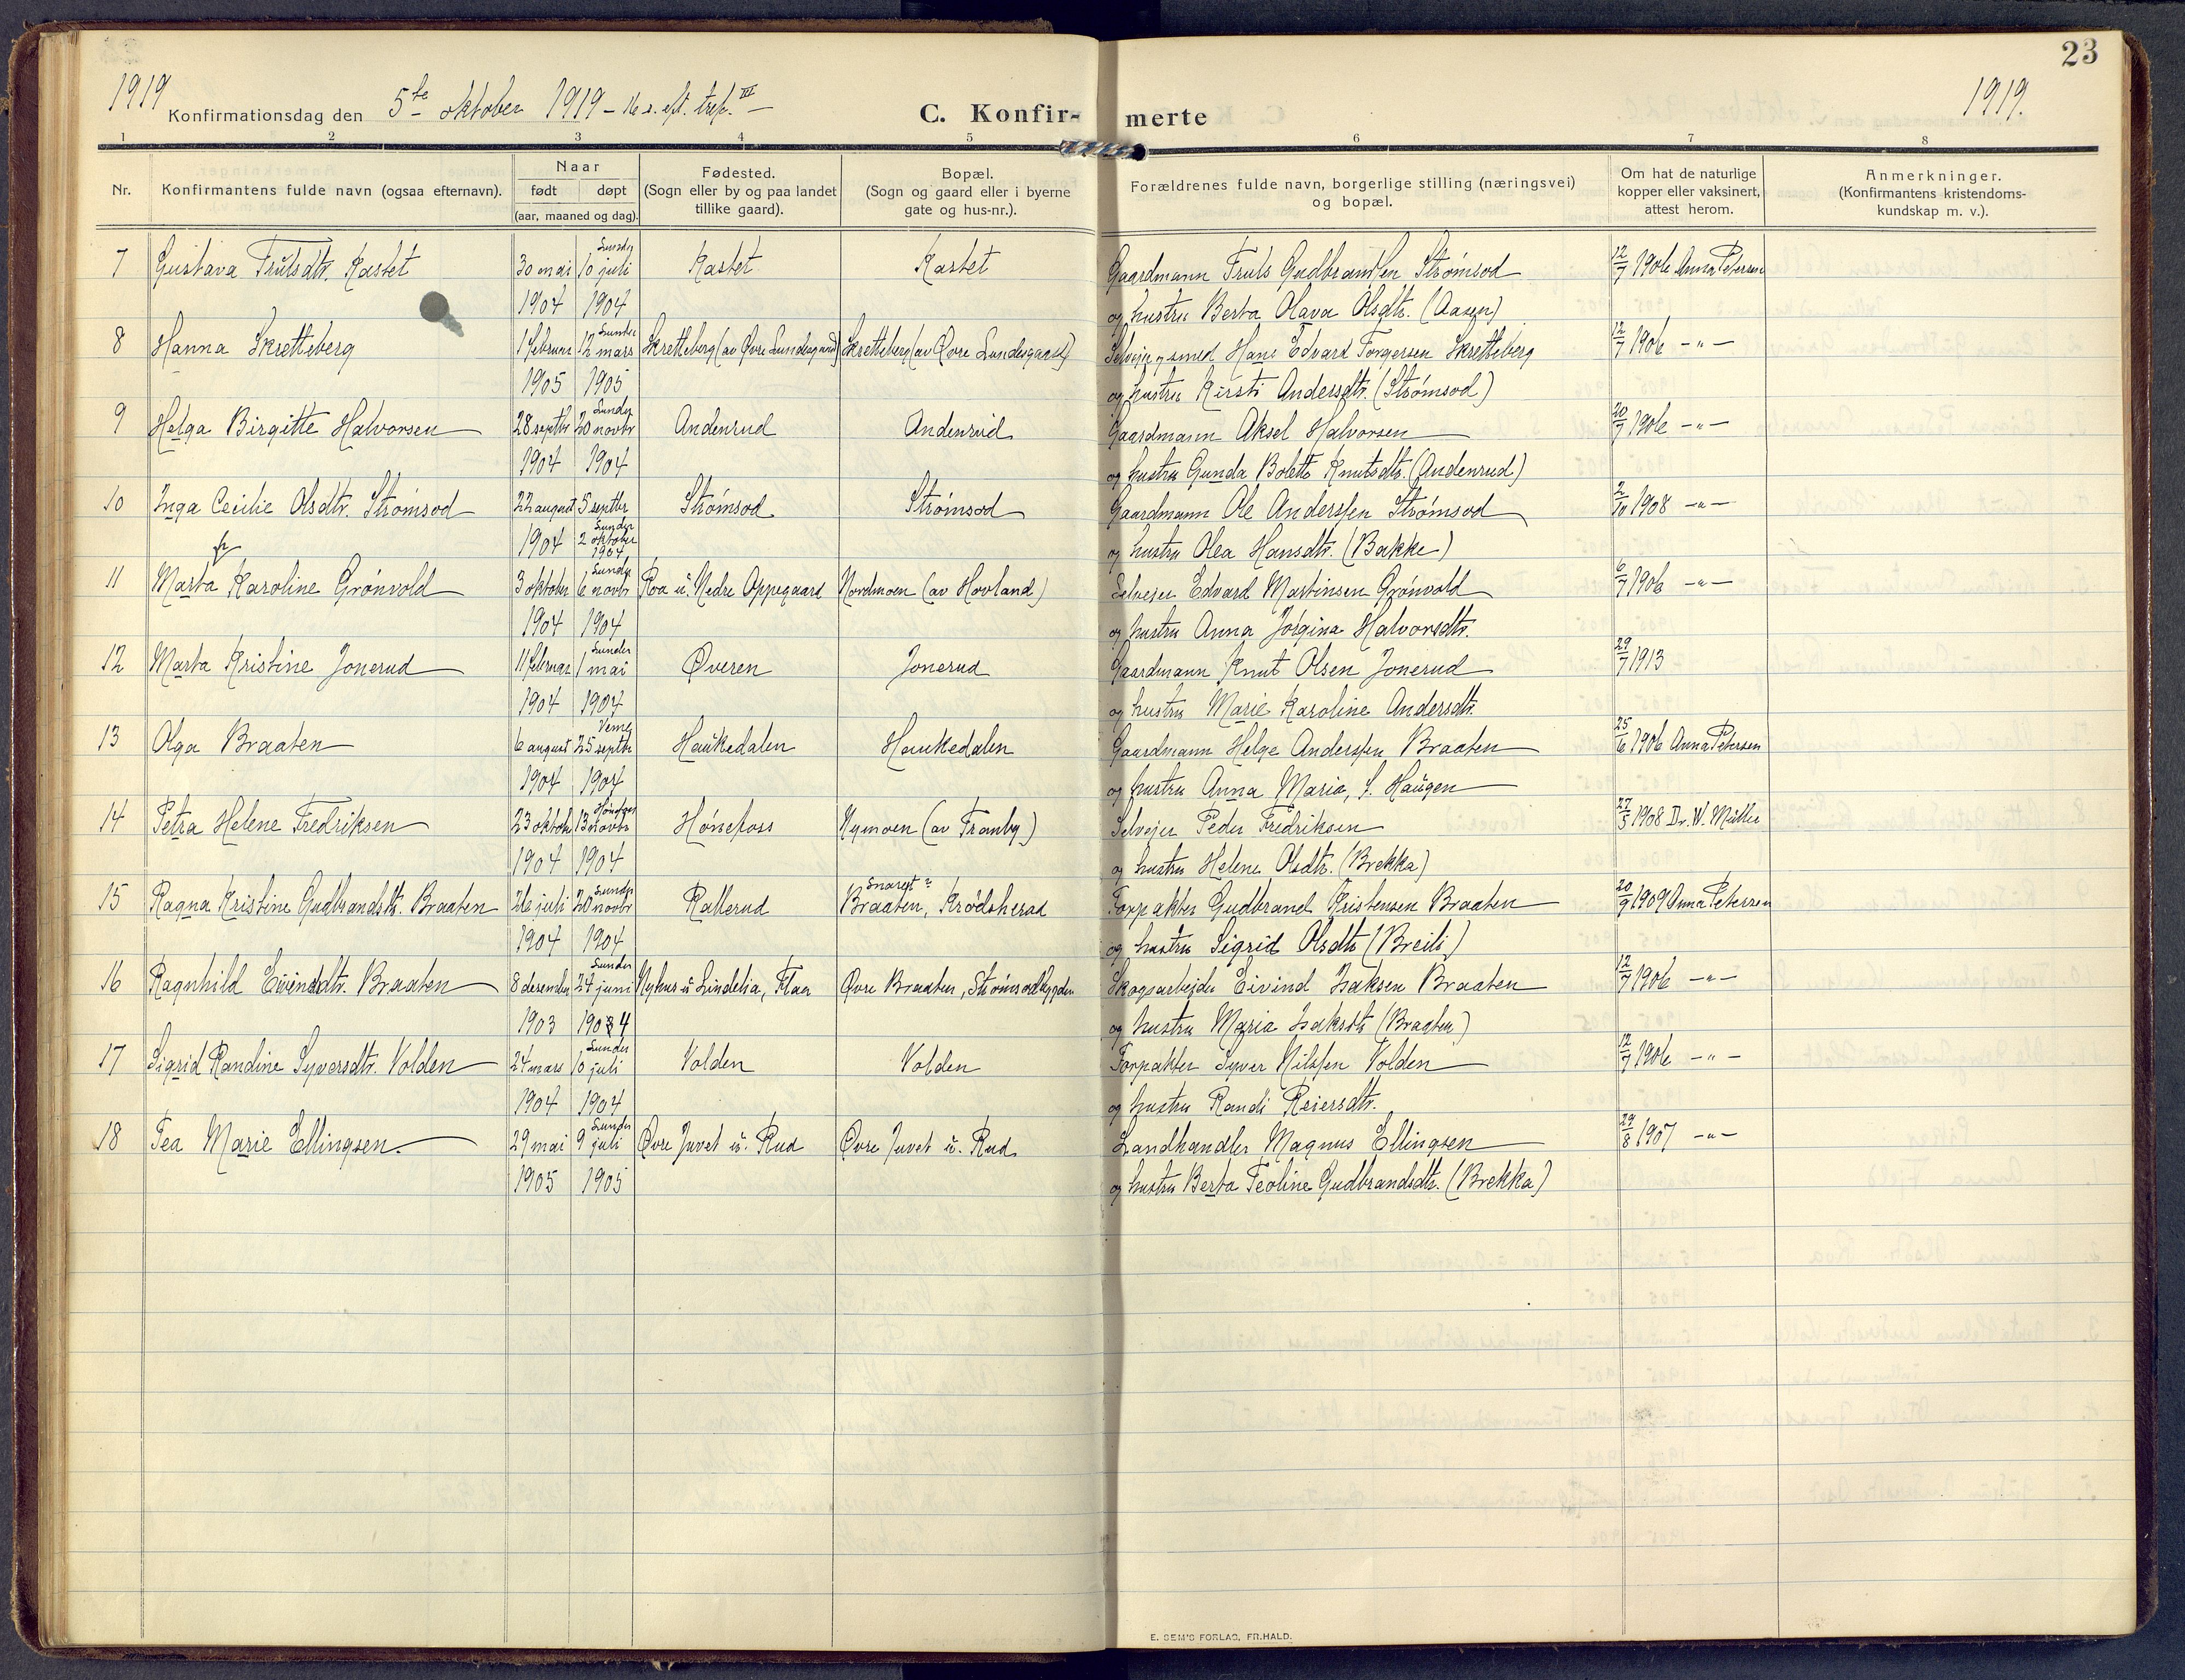 23
1919 1919.
Konfirmationsdag den 5te oktober 1919 – 16 s. eft. tref. III –
C. Konfir- merte
1 2 3 4 5 6 7 8
Nr.
Konfirmantens fulde navn (ogsaa efternavn).
Naar
født døpt
(aar, maaned og dag).
Fødested.
(Sogn eller by og paa landet
tillike gaard).
Bopæl.
(Sogn og gaard eller i byerne
gate og hus-nr.).
Forældrenes fulde navn, borgerlige stilling (næringsvei)
og bopæl.
Om hat de naturlige
kopper eller vaksinert,
attest herom.
Anmerkninger.
(Konfirmantens kristendoms-
kundskap m. v.).
7 Gustava Trulsdtr. Kastet 30 mai 10 juli Kastet Kastet Gaardmann Truls Gudbrandsen Strømsod 12/7 1906 Anna Petersen
1904 1904 og hustru Berta Olava Olsdtr. (Aasen)
8 Hanna Skretteberg 1 februar 12 mars Skretteberg (av Øvre Lundesgaard) Skretteberg (av Øvre Lundesgaard) Selveier og smed Hans Edvard Torgersen Skretteberg 12/7 1906 –"–
1905 1905 og hustru Kirsti Andersdtr. (Strømsod)
9 Helga Birgitte Halvorsen 28 septbr 20 novbr Andenrud Andenrud Gaardmann Aksel Halvorsen 20/7 1906 –"–
1904 1904 og hustru Gunda Bolette Knutsdtr. (Andenrud)
10 Inga Cecilie Olsdtr. Strømsod 22 august 5 septbr Strømsod Strømsod Gaardmann Ole Anderssen Strømsod 2/10 1908 –"–
1904 2 oktober 1904 og hustru Olea Hansdtr. (Bakke)
11 Marta Karoline Grønvold 3 oktober 6 novbr Roa u. Nedre Oppegaard Nordmoen (av Hovland) Selveier Edvard Martinsen Grønvold 6/7 1906 –"–
1904 1904 og hustru Anna Jørgina Halvorsdtr.
12 Marta Kristine Jonerud 11 februar 1 mai Øveren Jonerud Gaardmann Knut Olsen Jonerud 29/7 1913
1904 1904 og hustru Marie Karoline Andersdtr.
13 Olga Braaten 6 august 25 septbr Haukedalen Haukedalen Gaardmann Helge Anderssen Braaten 25/6 1906 Anna Petersen
1904 1904 og hustru Anna Maria, f. Haugen
14 Petra Helene Fredriksen 23 oktob 13 novbr Hønefoss Nymoen (av Tranby) Selveier Peder Fredriksen 27/5 1908 Dr. W. Müller
1904 1904 og hustru Helene Olsdtr. (Brekka)
15 Ragna Kristine Gudbrandsdtr. Braaten 26 juli 20 novbr Rallerud Braaten, Krødsherad Forpakter Gudbrand Kristensen Braaten 20/9 1909 Anna Petersen
1904 1904 og hustru Sigrid Olsdtr (Breili)
16 Ragnhild Eivindsdtr. Braaten 8 desember 24 juni Nyhus u. Lindelia, Flaa Øvre Braaten, Strømsodbygden Skogsarbeider Eivind Isaksen Braaten 12/7 1906 –"–
1903 1904 og hustru Maria Isaksdtr (Braaten)
17 Sigrid Randine Syversdtr. Volden 24 mars 10 juli Volden Volden Forpakter Syver Nilssen Volden 12/7 1906 –"–
1904 1904 og hustru Randi Reiersdtr.
18 Tea Marie Ellingsen. 29 mai 9 juli Øvre Juvet u. Rud Øvre Juvet u. Rud Landhandler Magnus Ellingsen 29/8 1907 –"–
1905 1905 og hustru Berta Teoline Gudbrandsdtr. (Brekka)
E. SEM'S FORLAG, FR.HALD.